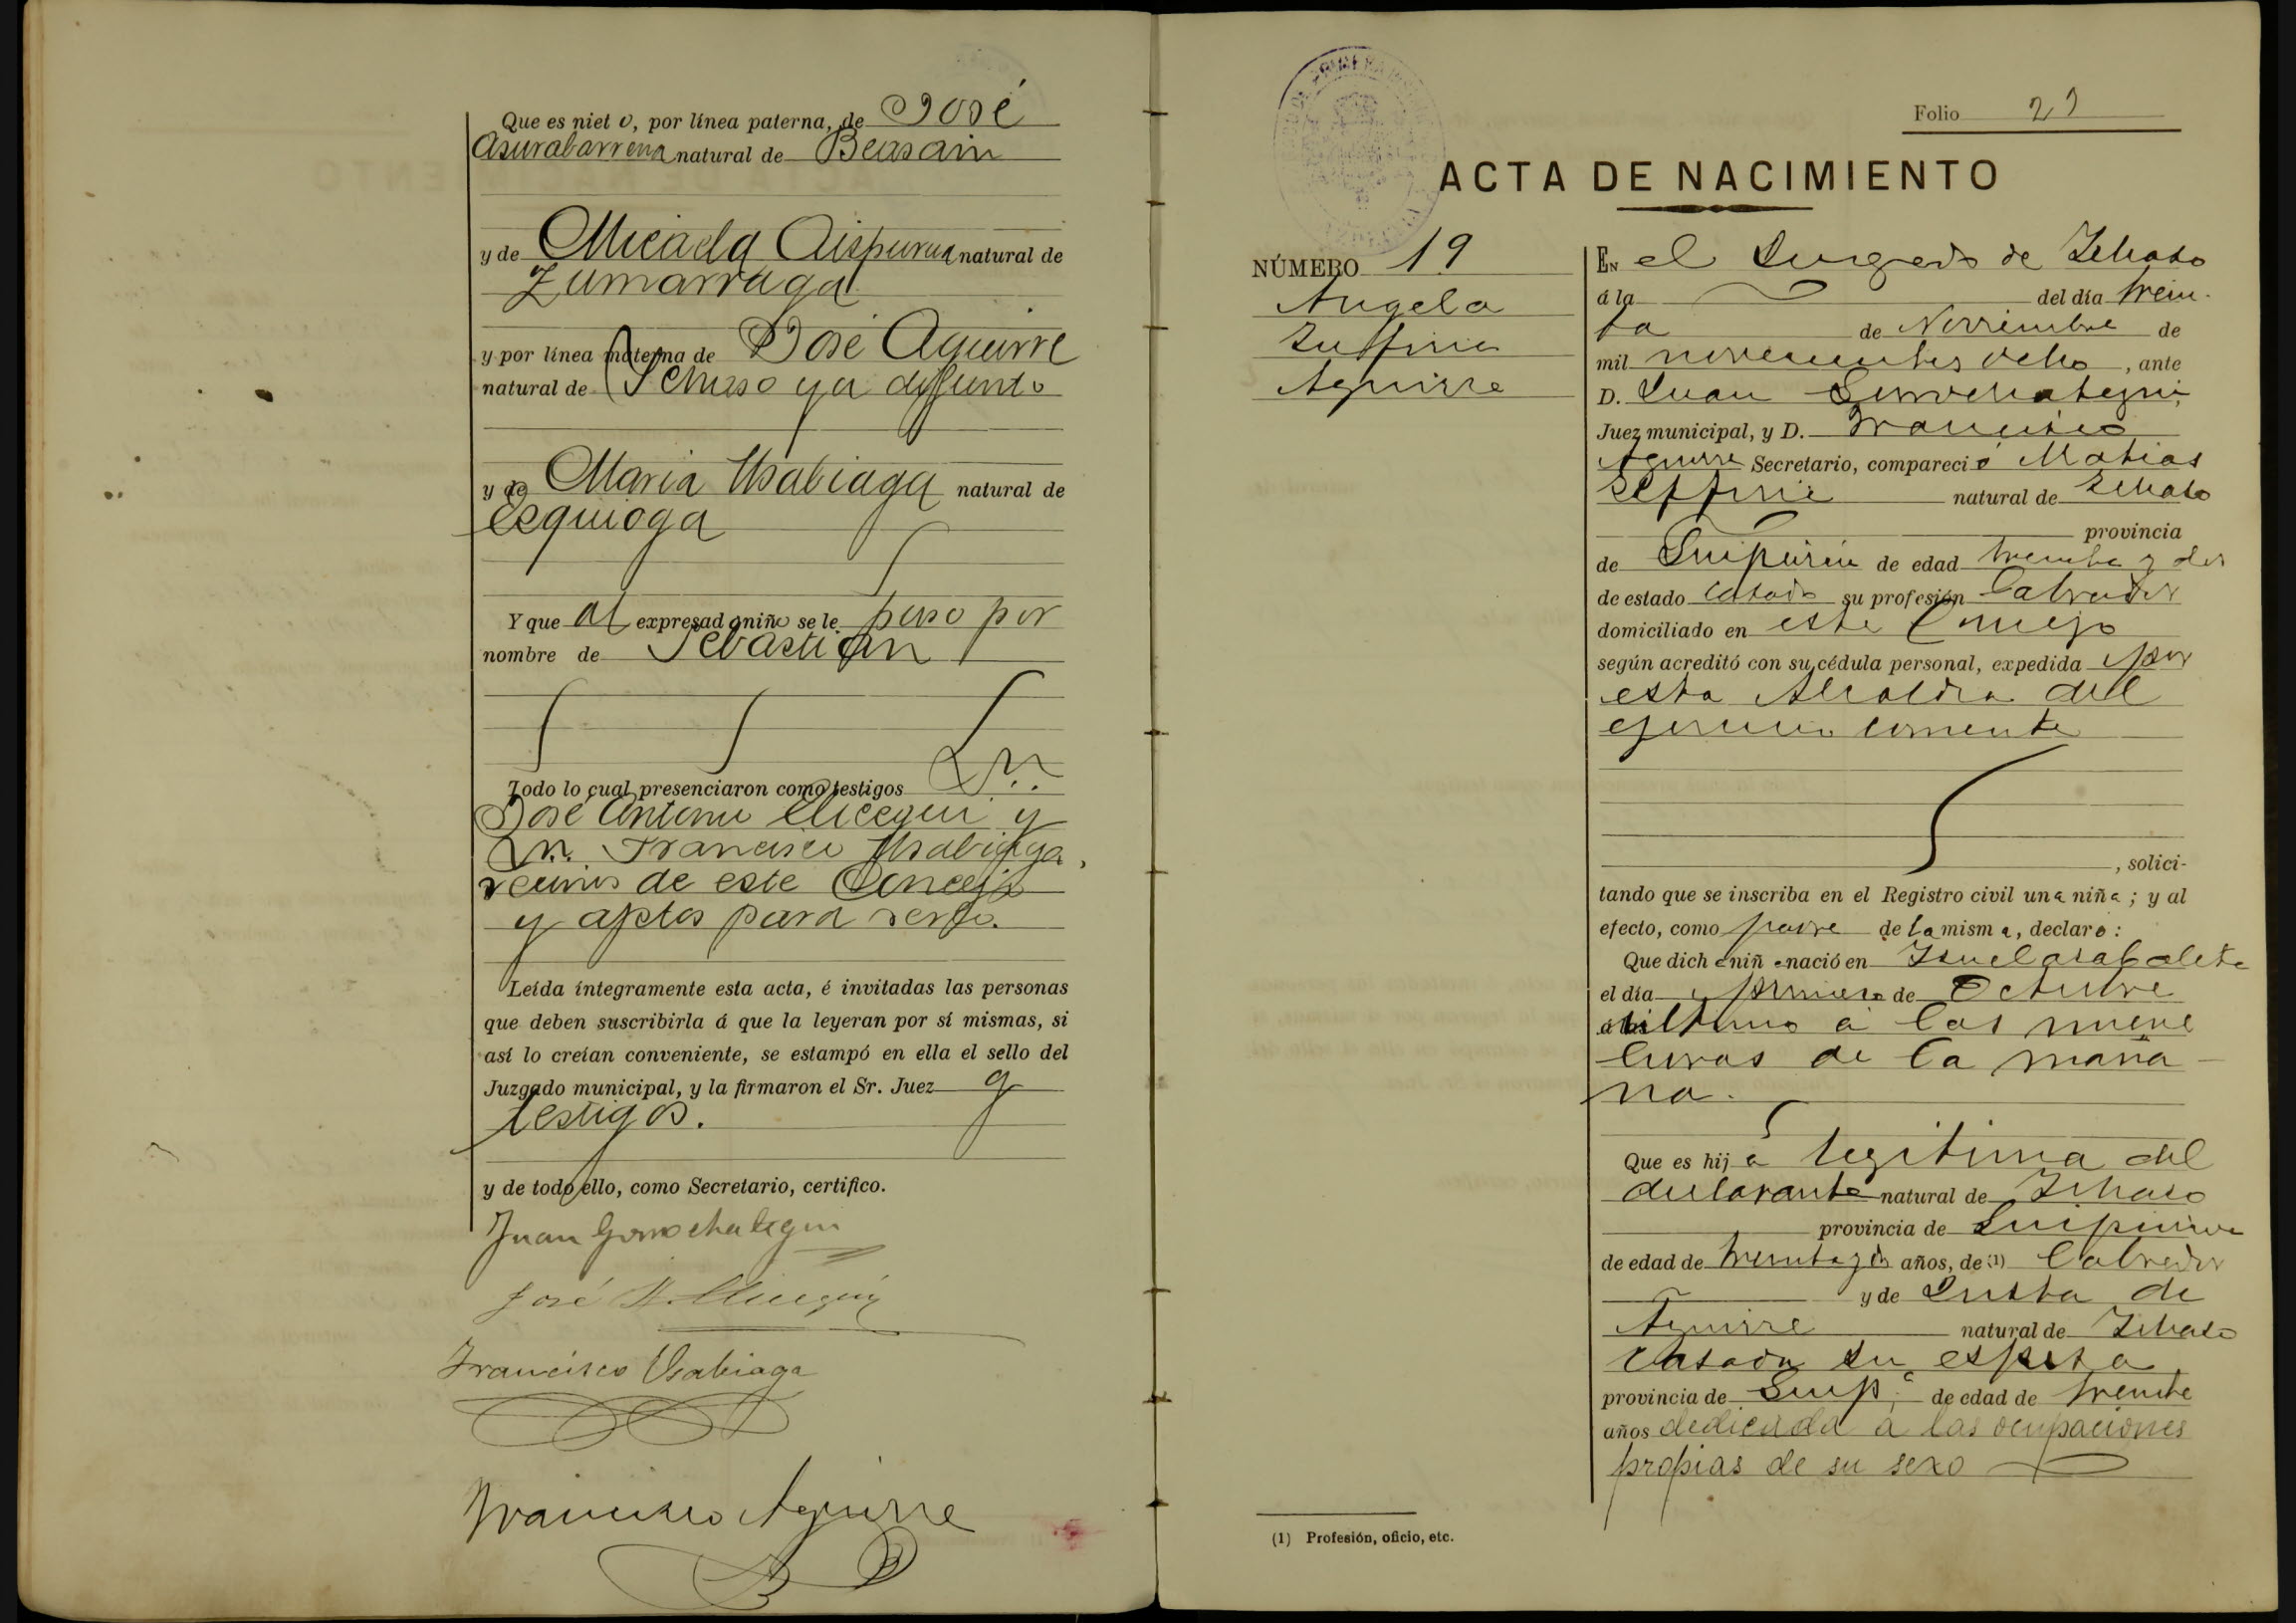 Que es nieto, por línea paterna, de José
Asurabarrena natural de Beasain
y de Micaela Aispurua natural de
Zumarraga
y por línea materna de José Aguirre
natural de Ichaso ya difunto
y de Maria Usabiaga natural de
Ezquioga
Y que al expresado niño se le puso por
nombre de Sebastian
Todo lo cual presenciaron como testigos Dn.
José Antonio Elicegui y
Dn. Francisco Usabiaga,
vecinos de este Concejo
y aptos para serlo.
Leída íntegramente esta acta, é invitadas las personas
que deben suscribirla á que la leyeran por sí mismas, si
así lo creían conveniente, se estampó en ella el sello del
Juzgado municipal, y la firmaron el Sr. Juez y
testigos.
y de todo ello, como Secretario, certifico.
Juan Gorrochategui
José A. Elicegui
Francisco Usabiaga
Francisco Aguirre
Folio 27
ACTA DE NACIMIENTO
NÚMERO 19
Angela
Aguirre
EN el Juzgado de Ichaso
á la del día trein-
ta de Noviembre de
mil novecientos ocho, ante
D. Juan Gorrochategui,
Juez municipal, y D. Francisco
Aguirre Secretario, compareció Matias
natural de Ichaso
provincia
de Guipúzcoa de edad treinta y dos
de estado casado su profesión labrador
domiciliado en este Concejo
según acreditó con su cédula personal, expedida por
esta Alcaldia del
ejercicio corriente
, solici-
tando que se inscriba en el Registro civil una niña; y al
efecto, como padre de la misma, declaró:
Que dicha niña nació en
el día primero de Octubre
último á las nueve
horas de la maña-
na.
Que es hija legitima del
declarante natural de Ichaso
provincia de Guipuzcoa
de edad de treinta y dos años, de (1) labrador
y de Justa de
Aguirre natural de Ichaso
casada su esposa
provincia de Guip.ª de edad de treinta
años dedicada á las ocupaciones
propias de su sexo
(1) Profesión, oficio, etc.